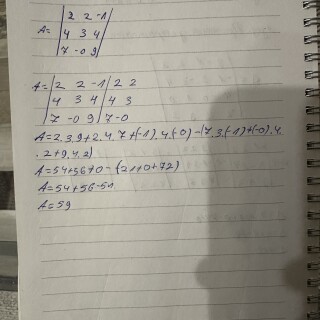 | 2 2 -1 |
A= | 4 3 4 |
| 7 -0 9 |
A= | 2 2 -1 | 2 2
| 4 3 4 | 4 3
| 7 -0 9 | 7 -0
A=2.3.9+2.4.7+(-1).4.(-0)-(7.3.(-1)+(-0).4
.2+9.4.2)
A=54+56+0-(-21+0+72)
A=54+56-51
A=59